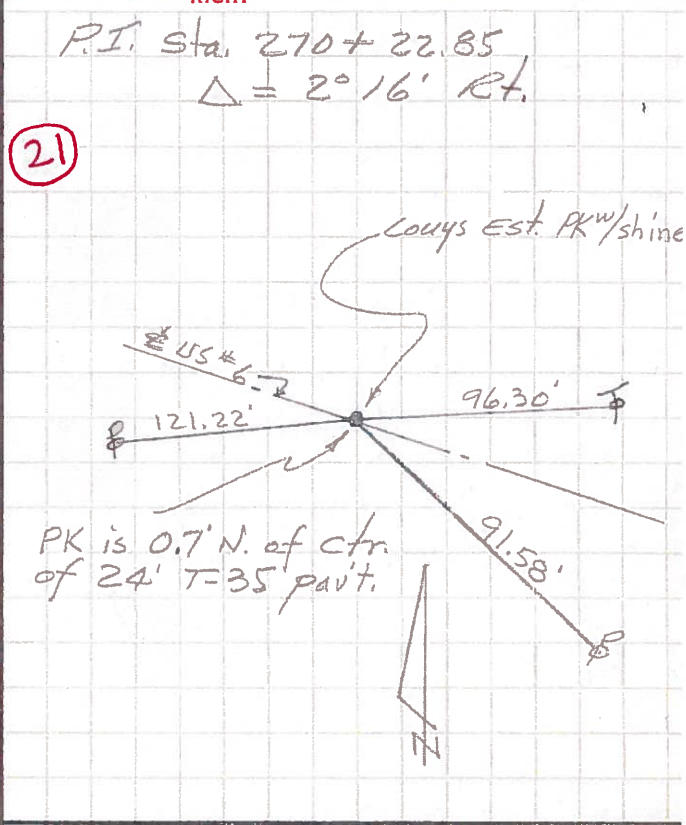 P.I. Sta. 270+22.85
Δ = 2° 16' Rt.
21
Louys Est. PK w/shine
℄ US #6
121.22'
96.30'
PK is 0.7' N. of Ctr.
of 24' T=35 pav't.
91.58'
N